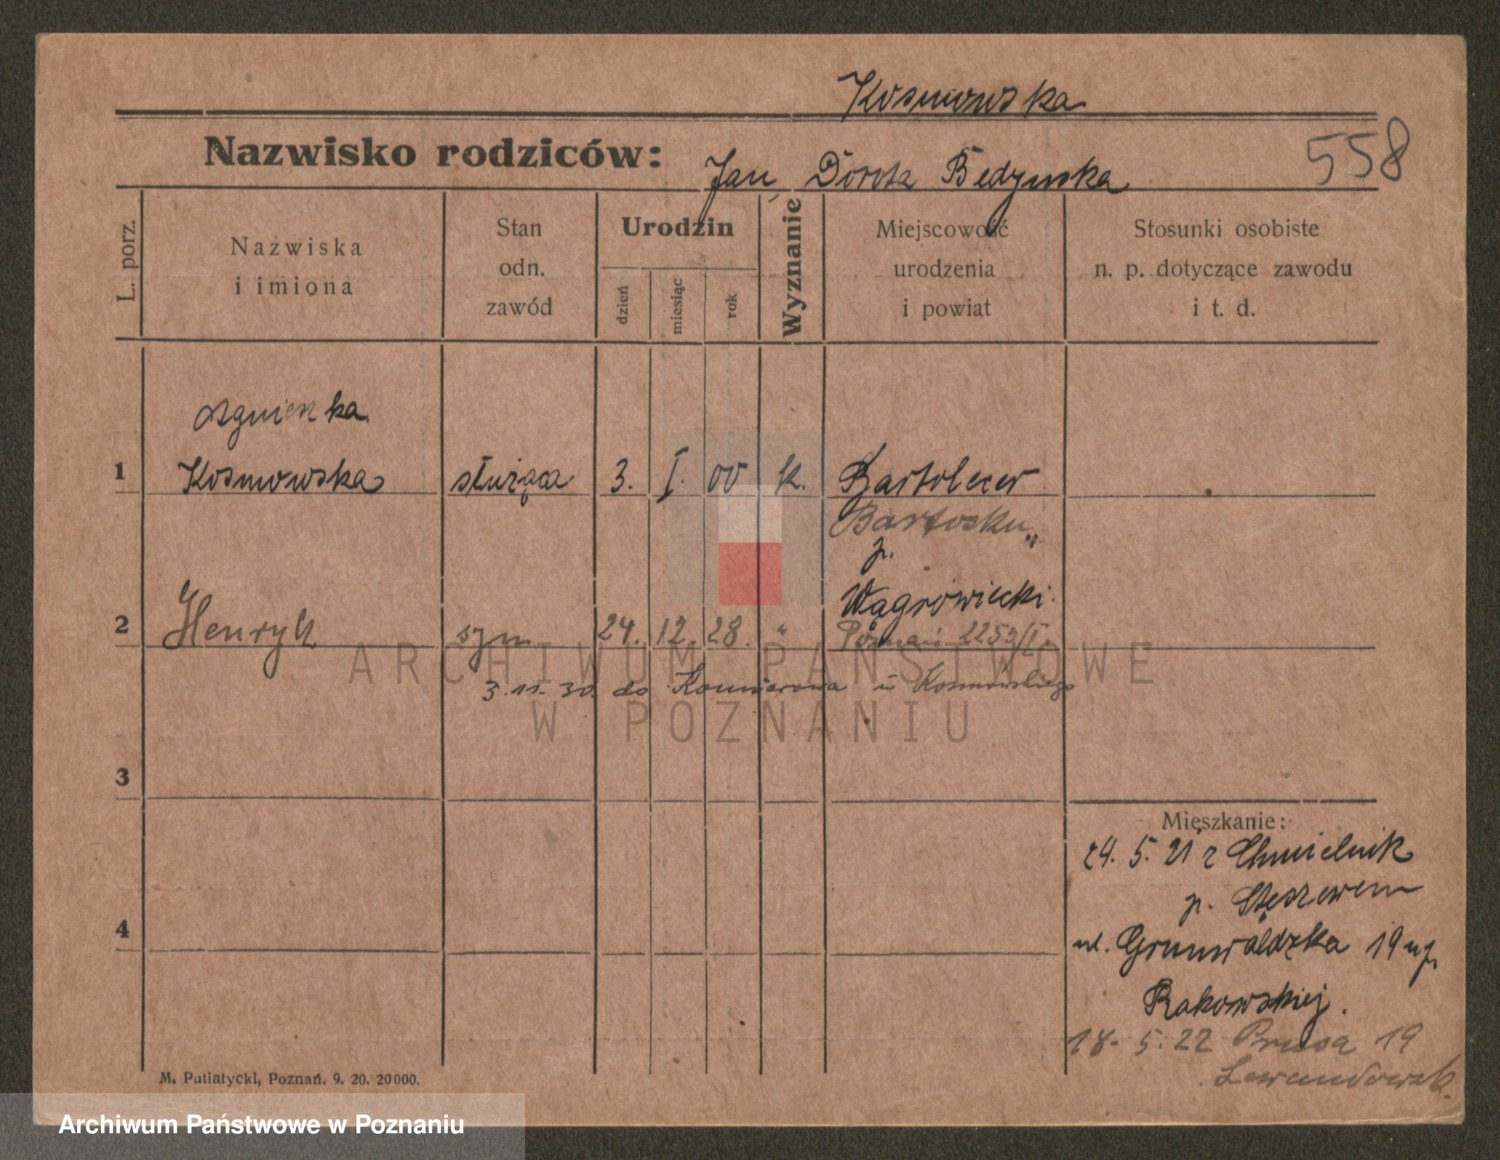 Kosmowska
Nazwisko rodziców: Jan, Dorota Bedynska
558
L. porz.
Nazwiska
i imiona
Stan
odn.
zawód
Urodzin
dzień
miesiąc
rok
Wyznanie
Miejscowość
urodzenia
i powiat
Stosunki osobiste
n. p. dotyczące zawodu
i t. d.
Agnieszka
1 Kosmowska służąca 3. I. 00 k.
p.
Wągrowiecki.
2 Henryk syn 24. 12. 28. " Poznań
3.11.30. do u Kosmowskiego
3
Mieszkanie:
24. 5. 21 z Chmielnik
p. Stęszewem
4
ul. Grunwaldzka 19 u p.
Rakowskiej.
18. 5. 22 Prusa 19
M. Putiatycki, Poznań. 9. 20. 20000.
ARCHIWUM PAŃSTWOWE
W POZNANIU
Archiwum Państwowe w Poznaniu